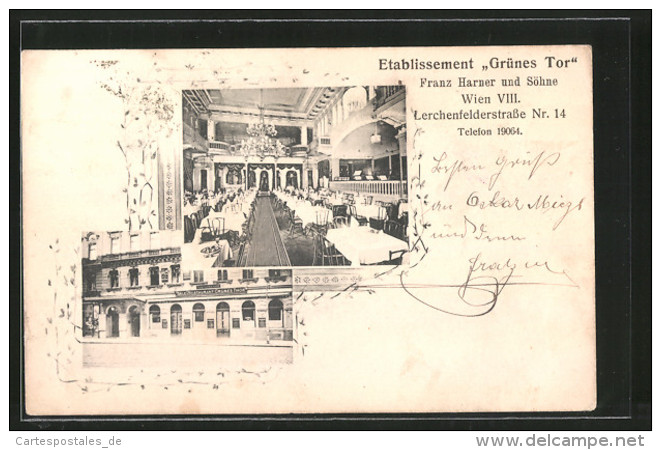 Etablissement „Grünes Tor“
Franz Harner und Söhne
Wien VIII.
Lerchenfelderstraße Nr. 14
Telefon 19064.
Besten Gruß
an Oskar
und
Cartespostales_de
www.delcampe.net